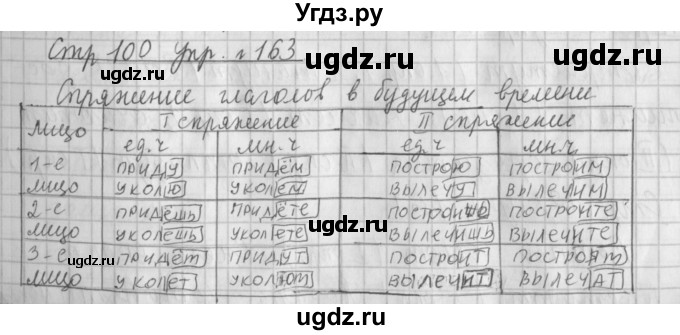 Угдз.ру
Стр 100 упр. № 163
ugdz.ru ugdz.ru
Спряжение глаголов в будущем времени
лицо I спряжение II спряжение
ед.ч мн.ч ед.ч мн.ч
1-е придУ придём построю построим
лицо уколю уколем вылечу вылечим
2-е придёшь придёте построишь построите
лицо уколешь уколете вылечишь вылечите
3-е придёт придут построит построят
лицо уколет уколют вылечит вылечат
ugdz.ru ugdz.ru
ugdz.ru ugdz.ru
ugdz.ru ugdz.ru
Угдз.ру